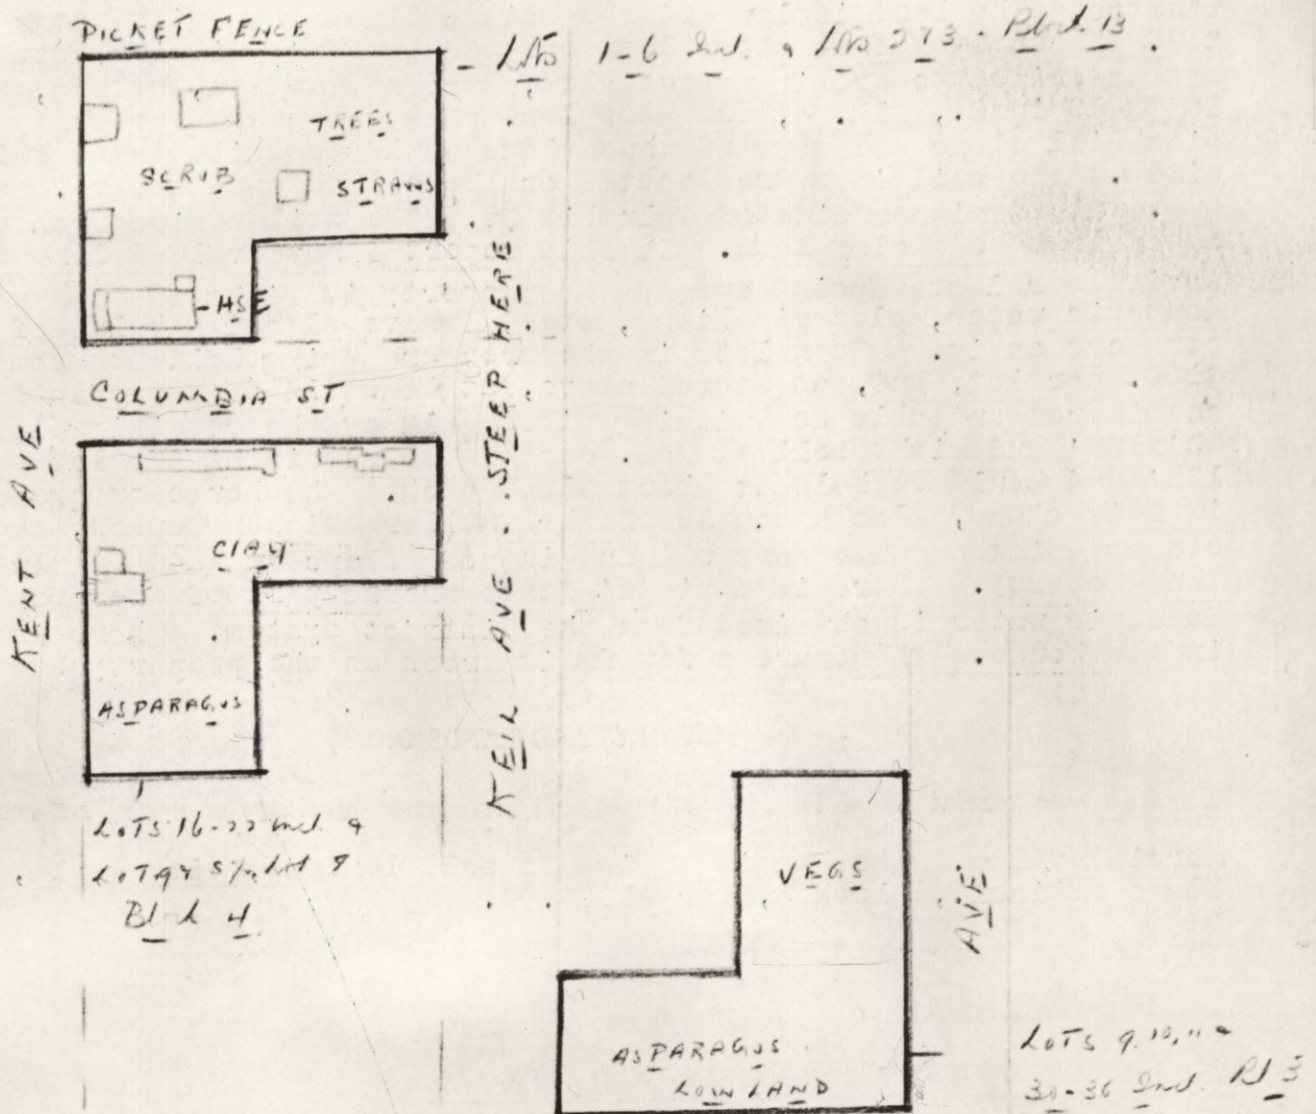 PICKET FENCE
Lots 1-6 Incl. & Lots 2 & 3 - Block 13
TREES
SCRUB
STRAWS
HSE
COLUMBIA ST
KENT AVE
KEIL AVE. STEEP HERE
CLAY
ASPARAGUS
LOTS 16-22 incl. &
LOT 9 & Lot 8
Block 4
VEGS
AVE
ASPARAGUS
LOW LAND
LOTS 9, 10, 11 &
30-36 Incl. Bl 3